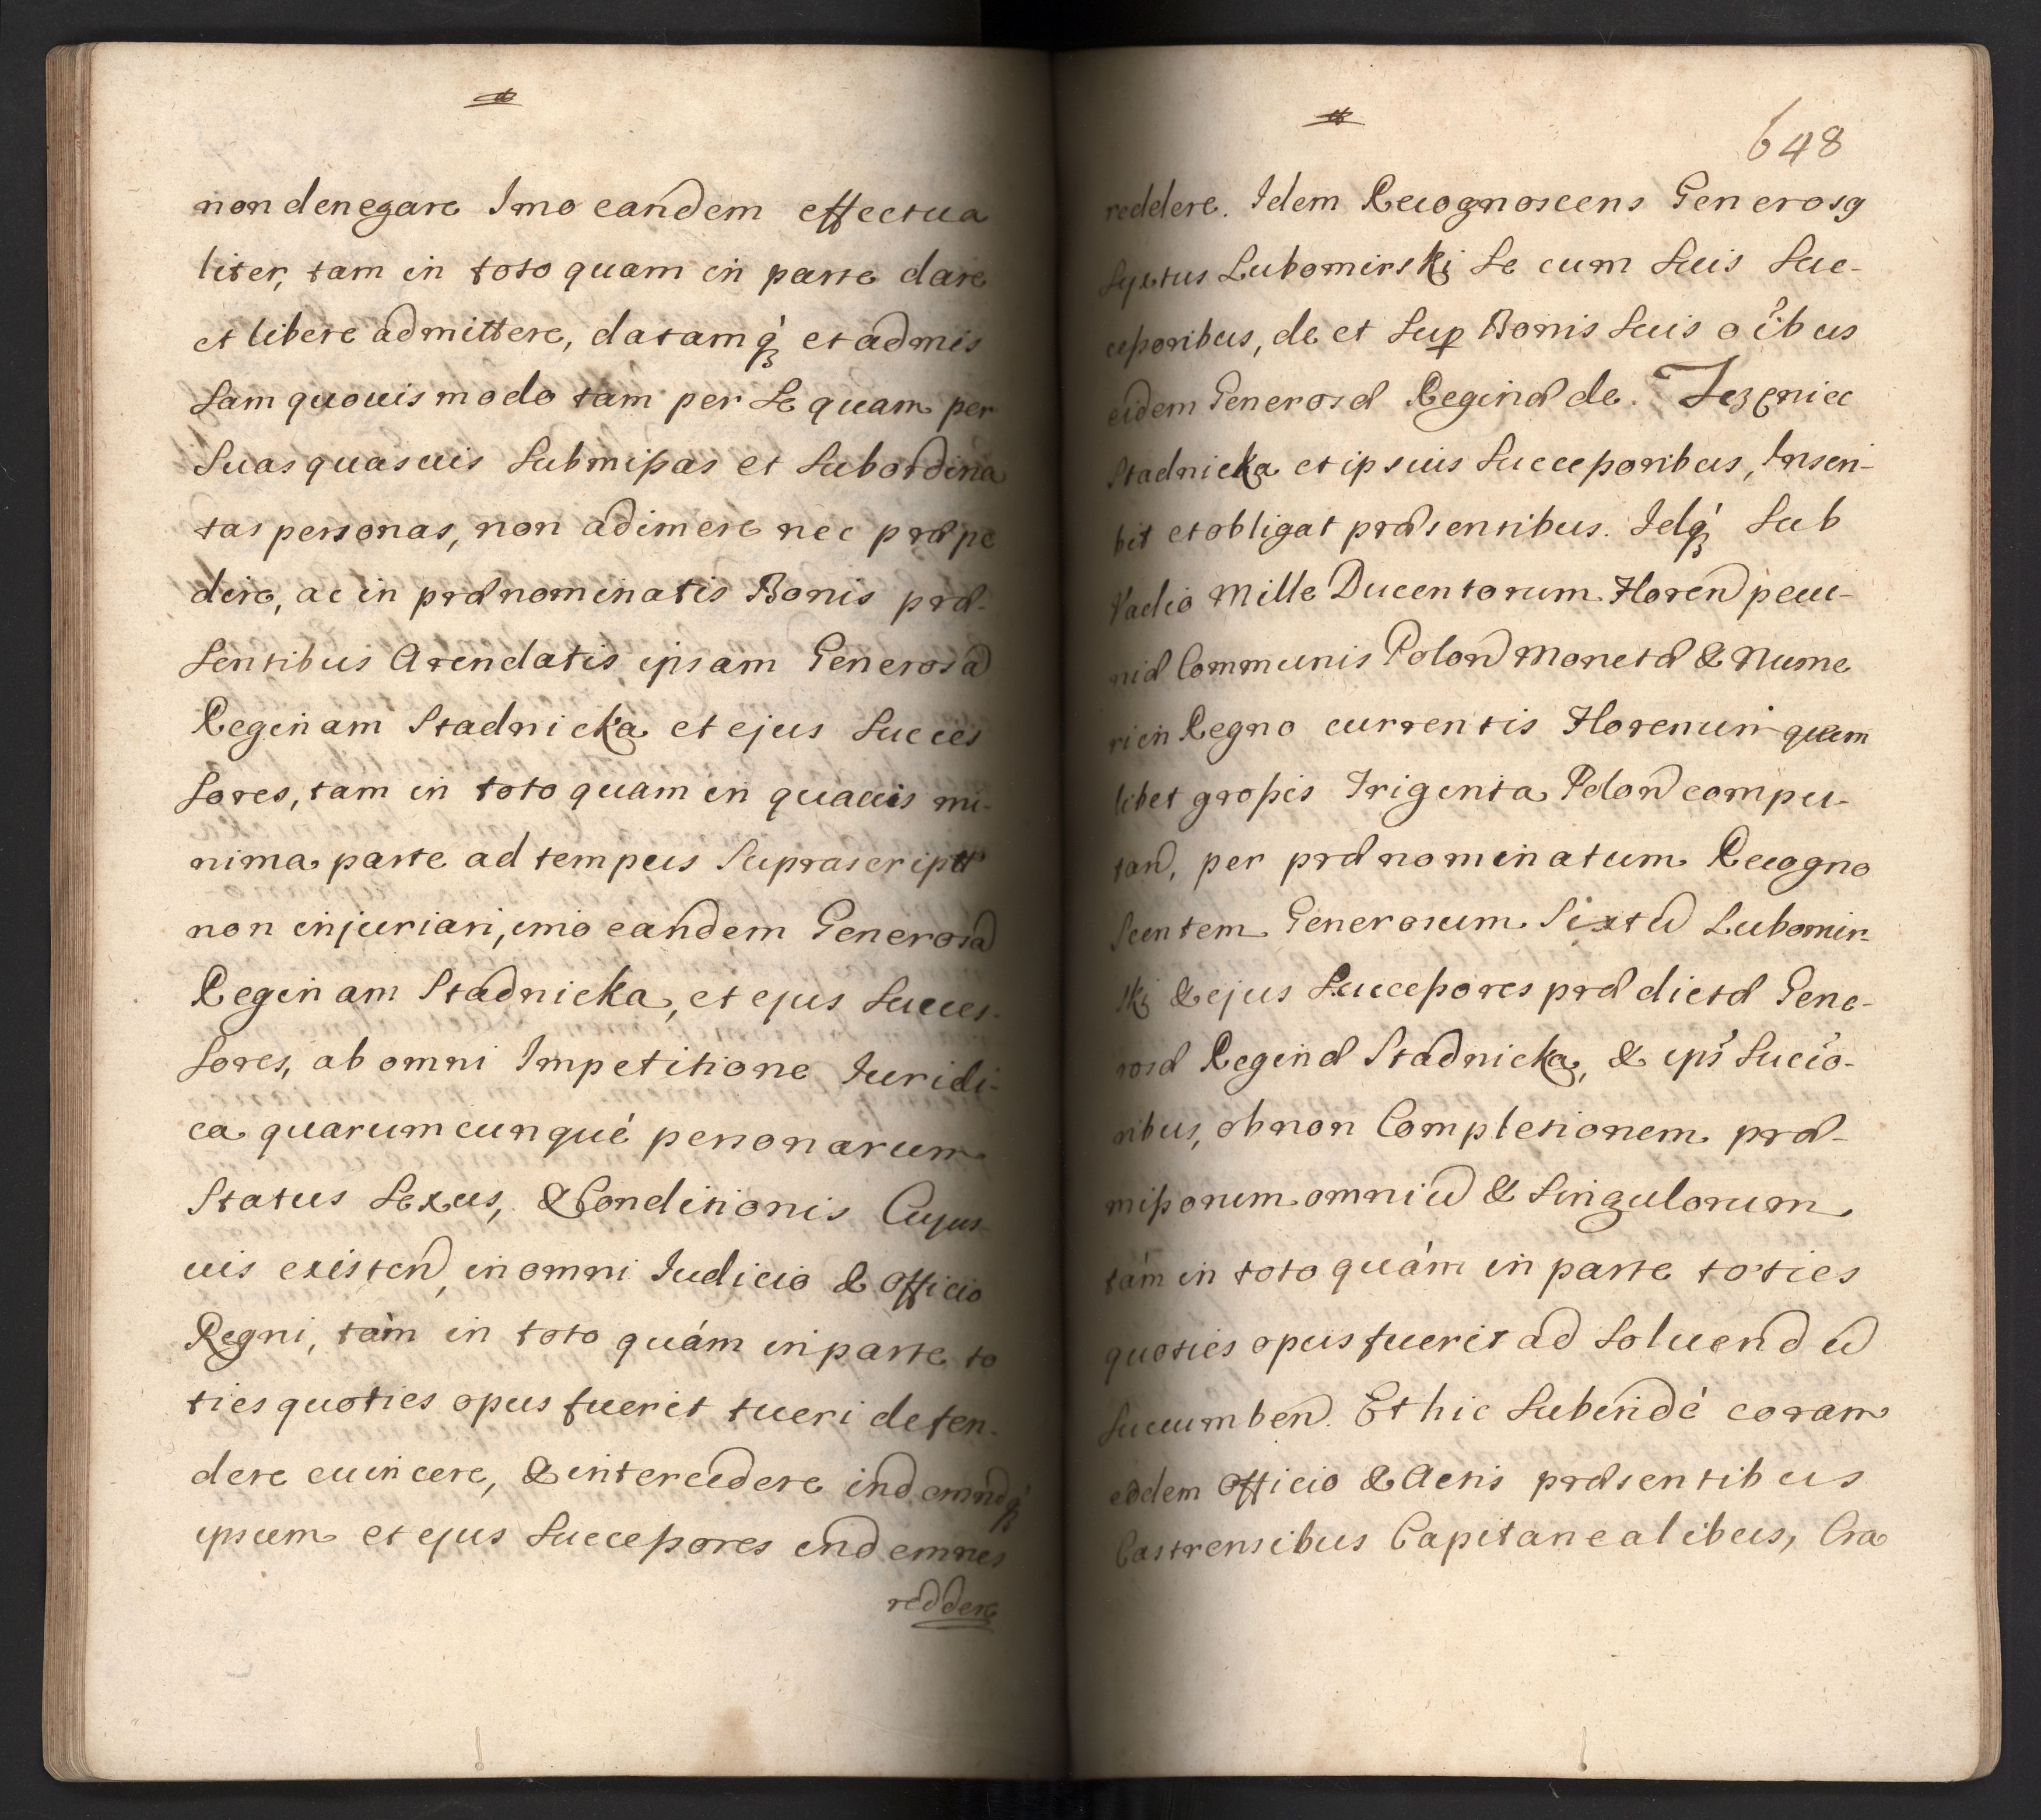 non denegare Imo eandem effectua
liter, tam in toto quam in parte dare
et libere admittere, datamq́ꝫ et admis
sam quovis modo tam per se quam per
suas quasuis submißas et subordina
tas personas, non adimere nec præpe
dire, ac in prænominatis Bonis præ-
sentibus Arendatis ipsam Generosã
Reginam Stadnicka et ejus Succes
sores, tam in toto quam in quauis mi-
nima parte ad tempus suprascriptt
non injuriari, imo eandem Generosã
Reginam Stadnicka, et ejus Succes-
sores, ab omni Impetitione Iuridi-
ca quarumcunqué personarum
Status Sexus, & Conditionis Cujus-
uis existen̄, in omni Iudicio & Officio
Regni, tàm in toto quám in parte to
ties quoties opus fuerit tueri defen-
dere euincere, & intercedere indemnéq́ꝫ
ipsum et ejus Succeßores indemnes
reddere
648
reddere. Idem Recognoscens Generosꝯ
Syxtus Lubomirski Se cum Suis Suc-
ceßoribus, de et sup̱ Bonis Suis oĩbus
eidem Generosæ Reginæ de. Jezẹniec
Stadnicka et ipsius Succeßoribus, Inscri-
bit et obligat præsentibus. Idq́ꝫ Sub
Vadio Mille Ducentorum Floren̄ pecu-
niæ Communis Polon̄ Monetæ & Nume
ri in Regno currentis Florenum quem
libet großis Triginta Polon̄ compu-
tan̄, per prænominatum Recogno
scentem Generosum Sixtū Lubomir-
ski & ejus Succeßores prædictæ Gene-
rosæ Reginæ Stadnicka, & ips̃ Succõ-
ribus, ob non Completionem præ-
mißorum omniū & Singulorum,
tám in toto quám in parte tóties
quoties opus fuerit ad Soluendū
succumben̄. Et hic Subindé coram
eodem Officio & Actis præsentibus
Castrensibus Capitanealibus, Cra